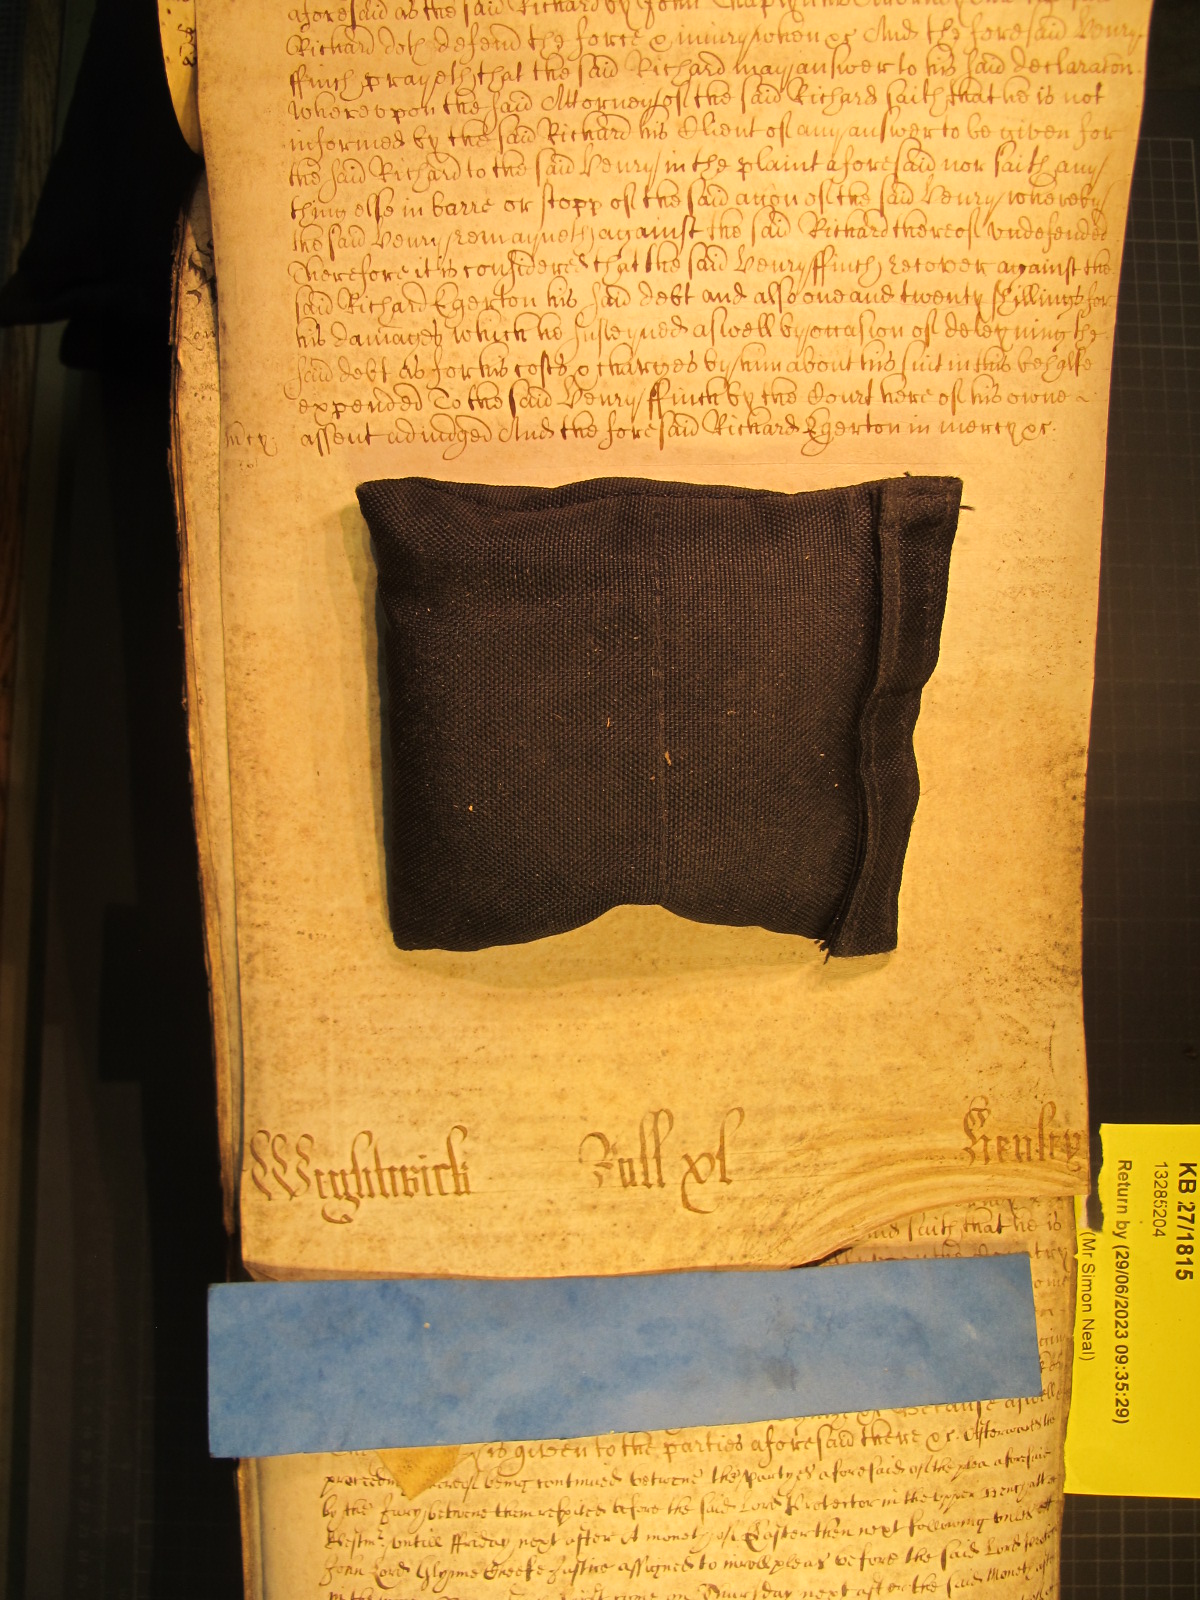 aforesaid as the said Richard by John
Richard doth defend the force & iniury when &c And the foresaid Henry
ffinch prayeth that the said Richard may answer to his said declaracon
Whereupon the said Attorney of the said Richard saith that he is not
informed by the said Richard his Client of any answer to be given for
the said Richard to the said Henry in the plaint aforesaid nor saith any
thing else in barre or stopp of the said accon of the said Henry whereby
the said Henry remayneth against the said Richard thereof vndefended
Therefore it is considered that the said Henry ffinch recover against the
said Richard Egerton his said debt and also one and twenty shillings for
his damages which he susteyned aswell by occasion of deteyning the
said debt as for his costs & charges by him about his suit in this behalfe
expended To the said Henry ffinch by the Court here of his owne
assent adiudged And the foresaid Richard Egerton in mercy &c.
mcy
Wightwick Roll xl Henley
and saith that he is
Because aswell
is given to the parties aforesaid there &c. Afterwards the
being continued betweene the partyes aforesaid of the plea aforesaid
by the Jury betweene them respited before the said Lord Protector in the vpper Bench att
Westmr. vntill ffriday next after A moneth of Easter then next following vnless
John Lord Glynne Cheefe Justice assigned to inroll pleas before the said Lord
on Thursday next after the said Moneth
KB 27/1815
13285204
Return by (29/06/2023 09:35:29)
(Mr Simon Neal)